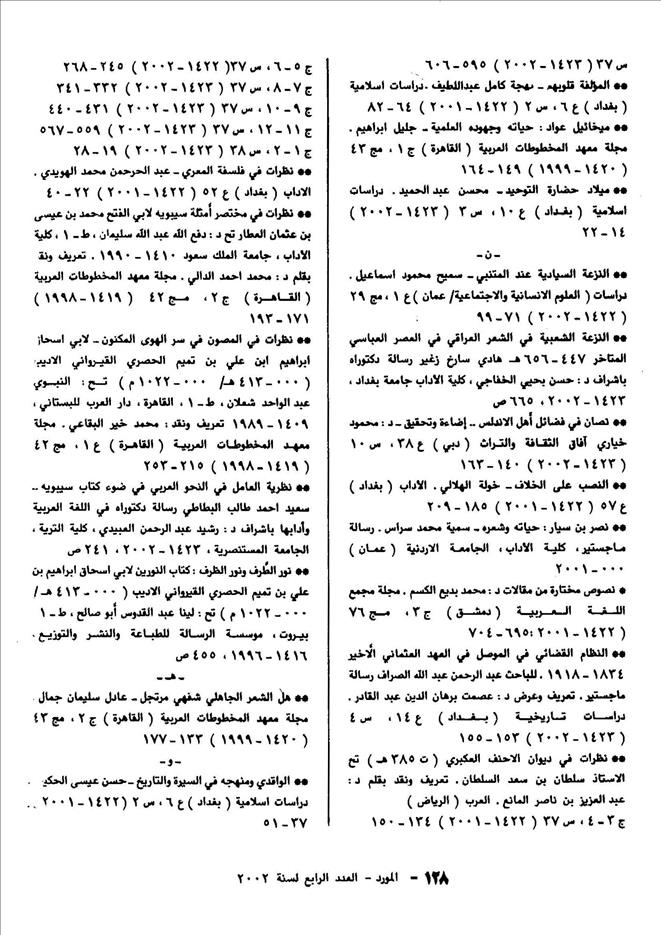 س ٣٧ ( ١٤٢٣ - ٢٠٠٢ ) ٥٩٥ - ٦٠٦
** المؤلفة قلوبهم - بهجة كامل عبداللطيف . دراسات اسلامية
( بغداد ) ع ٦ ، س ٢ ( ١٤٢٢ - ٢٠٠١ ) ٦٤ - ٨٢
** ميخائيل عواد : حياته وجهوده العلمية - جليل ابراهيم .
مجلة معهد المخطوطات العربية ( القاهرة ) ج ١ ، مج ٤٣
( ١٤٢٠ - ١٩٩٩ ) ١٤٩ - ١٦٤
** ميلاد حضارة التوحيد - محسن عبد الحميد . دراسات
اسلامية ( بغداد ) ع ١٠ ، س ٣ ( ١٤٢٣ - ٢٠٠٢ )
١٤ - ٢٢
- ن -
** النزعة السيادية عند المتنبي - سميح محمود اسماعيل .
دراسات ( العلوم الانسانية والاجتماعية/ عمان ) ع ١ ، مج ٢٩
( ١٤٢٢ - ٢٠٠٢ ) ٧١ - ٩٩
** النزعة الشعبية في الشعر العراقي في العصر العباسي
المتاخر ٤٤٧ - ٦٥٦ هـ هادي سارخ زغير رسالة دكتوراه
باشراف د : حسن يحيى الخفاجي ، كلية الآداب جامعة بغداد ،
١٤٢٣ - ٢٠٠٢ ، ٦٦٥ ص
** نصان في فضائل أهل الاندلس .. إضاءة وتحقيق - د : محمود
خياري آفاق الثقافة والتراث ( دبي ) ع ٣٨ ، س ١٠
( ١٤٢٣ - ٢٠٠٢ ) ١٤٠ - ١٦٣
** النصب على الخلاف - خولة الهلالي . الآداب ( بغداد )
ع ٥٧ ( ١٤٢٢ - ٢٠٠١ ) ١٨٥ - ٢٠٩
** نصر بن سيار : حياته وشعره - سمية محمد سراس . رسالة
ماجستير ، كلية الآداب ، الجامعة الاردنية ( عمان )
٠٠٠ - ٢٠٠١
* نصوص مختارة من مقالات د : محمد بديع الكسم . مجلة مجمع
اللغة العربية ( دمشق ) ج ٣ ، مج ٧٦
( ١٤٢٢ - ٢٠٠١ : ٦٩٥ - ٧٠٤
** النظام القضائي في الموصل في العهد العثماني الأخير
١٨٣٤ - ١٩١٨ . للباحث عبد الرحمن عبد الله الصراف رسالة
ماجستير . تعريف وعرض د : عصمت برهان الدين عبد القادر .
دراسات تاريخية ( بغداد ) ع ١٤ ، س ٤
( ١٤٢٣ - ٢٠٠٢ ) ١٥٣ - ١٥٥
** نظرات في ديوان الاحنف العكبري ( ت ٣٨٥ هـ ) تح
الاستاذ سلطان بن سعد السلطان . تعريف ونقد بقلم د :
عبد العزيز بن ناصر المانع . العرب ( الرياض )
ج ٣ - ٤ ، س ٣٧ ( ١٤٢٢ - ٢٠٠١ ) ١٣٤ - ١٥٠
ج ٥ - ٦ ، س ٣٧( ١٤٢٢ - ٢٠٠٢ ) ٢٤٥ - ٢٦٨
ج ٧ - ٨ ، س ٣٧ ( ١٤٢٣ - ٢٠٠٢ ) ٣٣٢ - ٣٤١
ج ٩ - ١٠ ، س ٣٧ ( ١٤٢٣ - ٢٠٠٢ ) ٤٣١ - ٤٤٠
ج ١١ - ١٢ ، س ٣٧ ( ١٤٢٣ - ٢٠٠٢ ) ٥٥٩ - ٥٦٧
ج ١ - ٢ ، س ٣٨ ( ١٤٢٣ - ٢٠٠٢ ) ١٩ - ٢٨
** نظرات في فلسفة المعري - عبد الرحمن محمد الهويدي .
الاداب ( بغداد ) ع ٥٢ ( ١٤٢٢ - ٢٠٠١ ) ٢٢ - ٤٠
** نظرات في مختصر أمثلة سيبويه لابي الفتح محمد بن عيسى
بن عثمان العطار تح د : دفع الله عبد الله سليمان ، ط - ١ ، كلية
الآداب ، جامعة الملك سعود ١٤١٠ - ١٩٩٠ . تعريف ونقد
بقلم د : محمد احمد الدالي . مجلة معهد المخطوطات العربية
( القاهرة ) ج ٢ ، مج ٤٢ ( ١٤١٩ - ١٩٩٨ )
١٧١ - ١٩٣
** نظرات في المصون في سر الهوى المكنون - لابي اسحاق
ابراهيم ابن علي بن تميم الحصري القيرواني الاديب
( ٠٠٠ - ٤١٣ هـ/ ٠٠٠ - ١٠٢٢ م ) تح : النبوي
عبد الواحد شعلان ، ط - ١ ، القاهرة ، دار العرب للبستاني ،
١٤٠٩ - ١٩٨٩ تعريف ونقد : محمد خير البقاعي . مجلة
معهد المخطوطات العربية ( القاهرة ) ع ١ ، مج ٤٢
( ١٤١٩ - ١٩٩٨ ) ٢١٥ - ٢٥٣
** نظرية العامل في النحو العربي في ضوء كتاب سيبويه ..
سعيد احمد طالب البطاطي رسالة دكتوراه في اللغة العربية
وأدابها باشراف د : رشيد عبد الرحمن العبيدي ، كلية التربة ،
الجامعة المستنصرية ، ١٤٢٣ - ٢٠٠٢ ، ٢٤١ ص
** نور الطُرف ونور الظرف : كتاب النورين لابي اسحاق ابراهيم بن
علي بن تميم الحصري القيرواني الاديب ( ٠٠٠ - ٤١٣ هـ /
٠٠٠ - ١٠٢٢ م ) تح : لينا عبد القدوس أبو صالح ، ط - ١
بيروت ، موسسة الرسالة للطباعة والنشر والتوزيع .
١٤١٦ - ١٩٩٦ ، ٤٥٥ ص
- هـ -
** هل الشعر الجاهلي شفهي مرتجل - عادل سليمان جمال .
مجلة معهد المخطوطات العربية ( القاهرة ) ج ٢ ، مج ٤٣
( ١٤٢٠ - ١٩٩٩ ) ١٣٣ - ١٧٧
- و -
** الواقدي ومنهجه في السيرة والتاريخ - حسن عيسى الحكيم
دراسات اسلامية ( بغداد ) ع ٦ ، س ٢ ( ١٤٢٢ - ٢٠٠١ )
٣٧ - ٥١
١٢٨ - المورد - العدد الرابع لسنة ٢٠٠٢